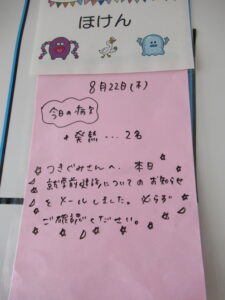 ほけん
8月22日(木)
今日の病欠
発熱…2名
つきぐみさんへ、本日
就学前健診についてのお知らせ
をメールしました。必らず
ご確認ください。